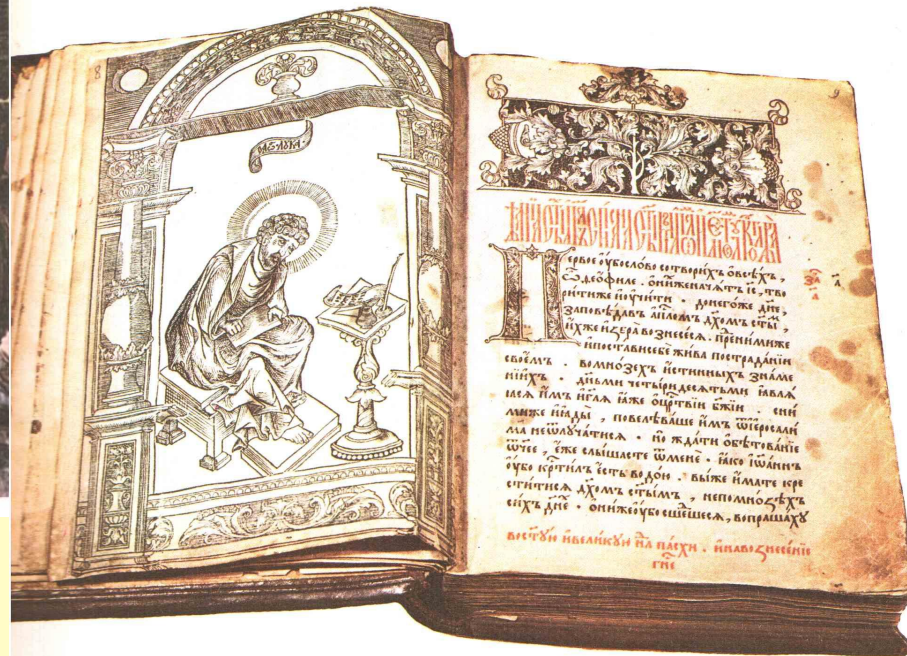 8
9
Первое ᲂубо слово сотворихъ ѡ всѣхъ,
ѽ ѳеѡфиле . ѡ ни́хже начатъ і҃с , тво
рити же и ᲂучити . до него же дне ,
заповѣдавъ апⷭ҇лѡмъ дх҃омъ ст҃ы́мъ ,
и́хже избра вознесеся . пред ними же
и постави себе жива по страданїи
своемъ . во мнозехъ истинныхъ зна́ме
нїихъ . дньми четыридесятьми являя
ся имъ и гл҃я яже о црⷭ҇твїи бж҃їи . с ни
миже и яды , повелѣваше имъ ѿ іеросали
ма не ѿлучатися . но ждати обѣтованїе
ѿчее , еже слышасте ѿ мене . яко іѡаннъ
ᲂубо крⷭ҇тилъ есть водою . вы же имате кре
ститися дх҃омъ ст҃ымъ , не по мноѕѣхъ
сихъ дн҃е . ѡни же ᲂубо сшешеся , вопрашаху
во ст҃ую и великую нлⷧ҇ѧ пасхи . и на вознесенїе
гн҃е